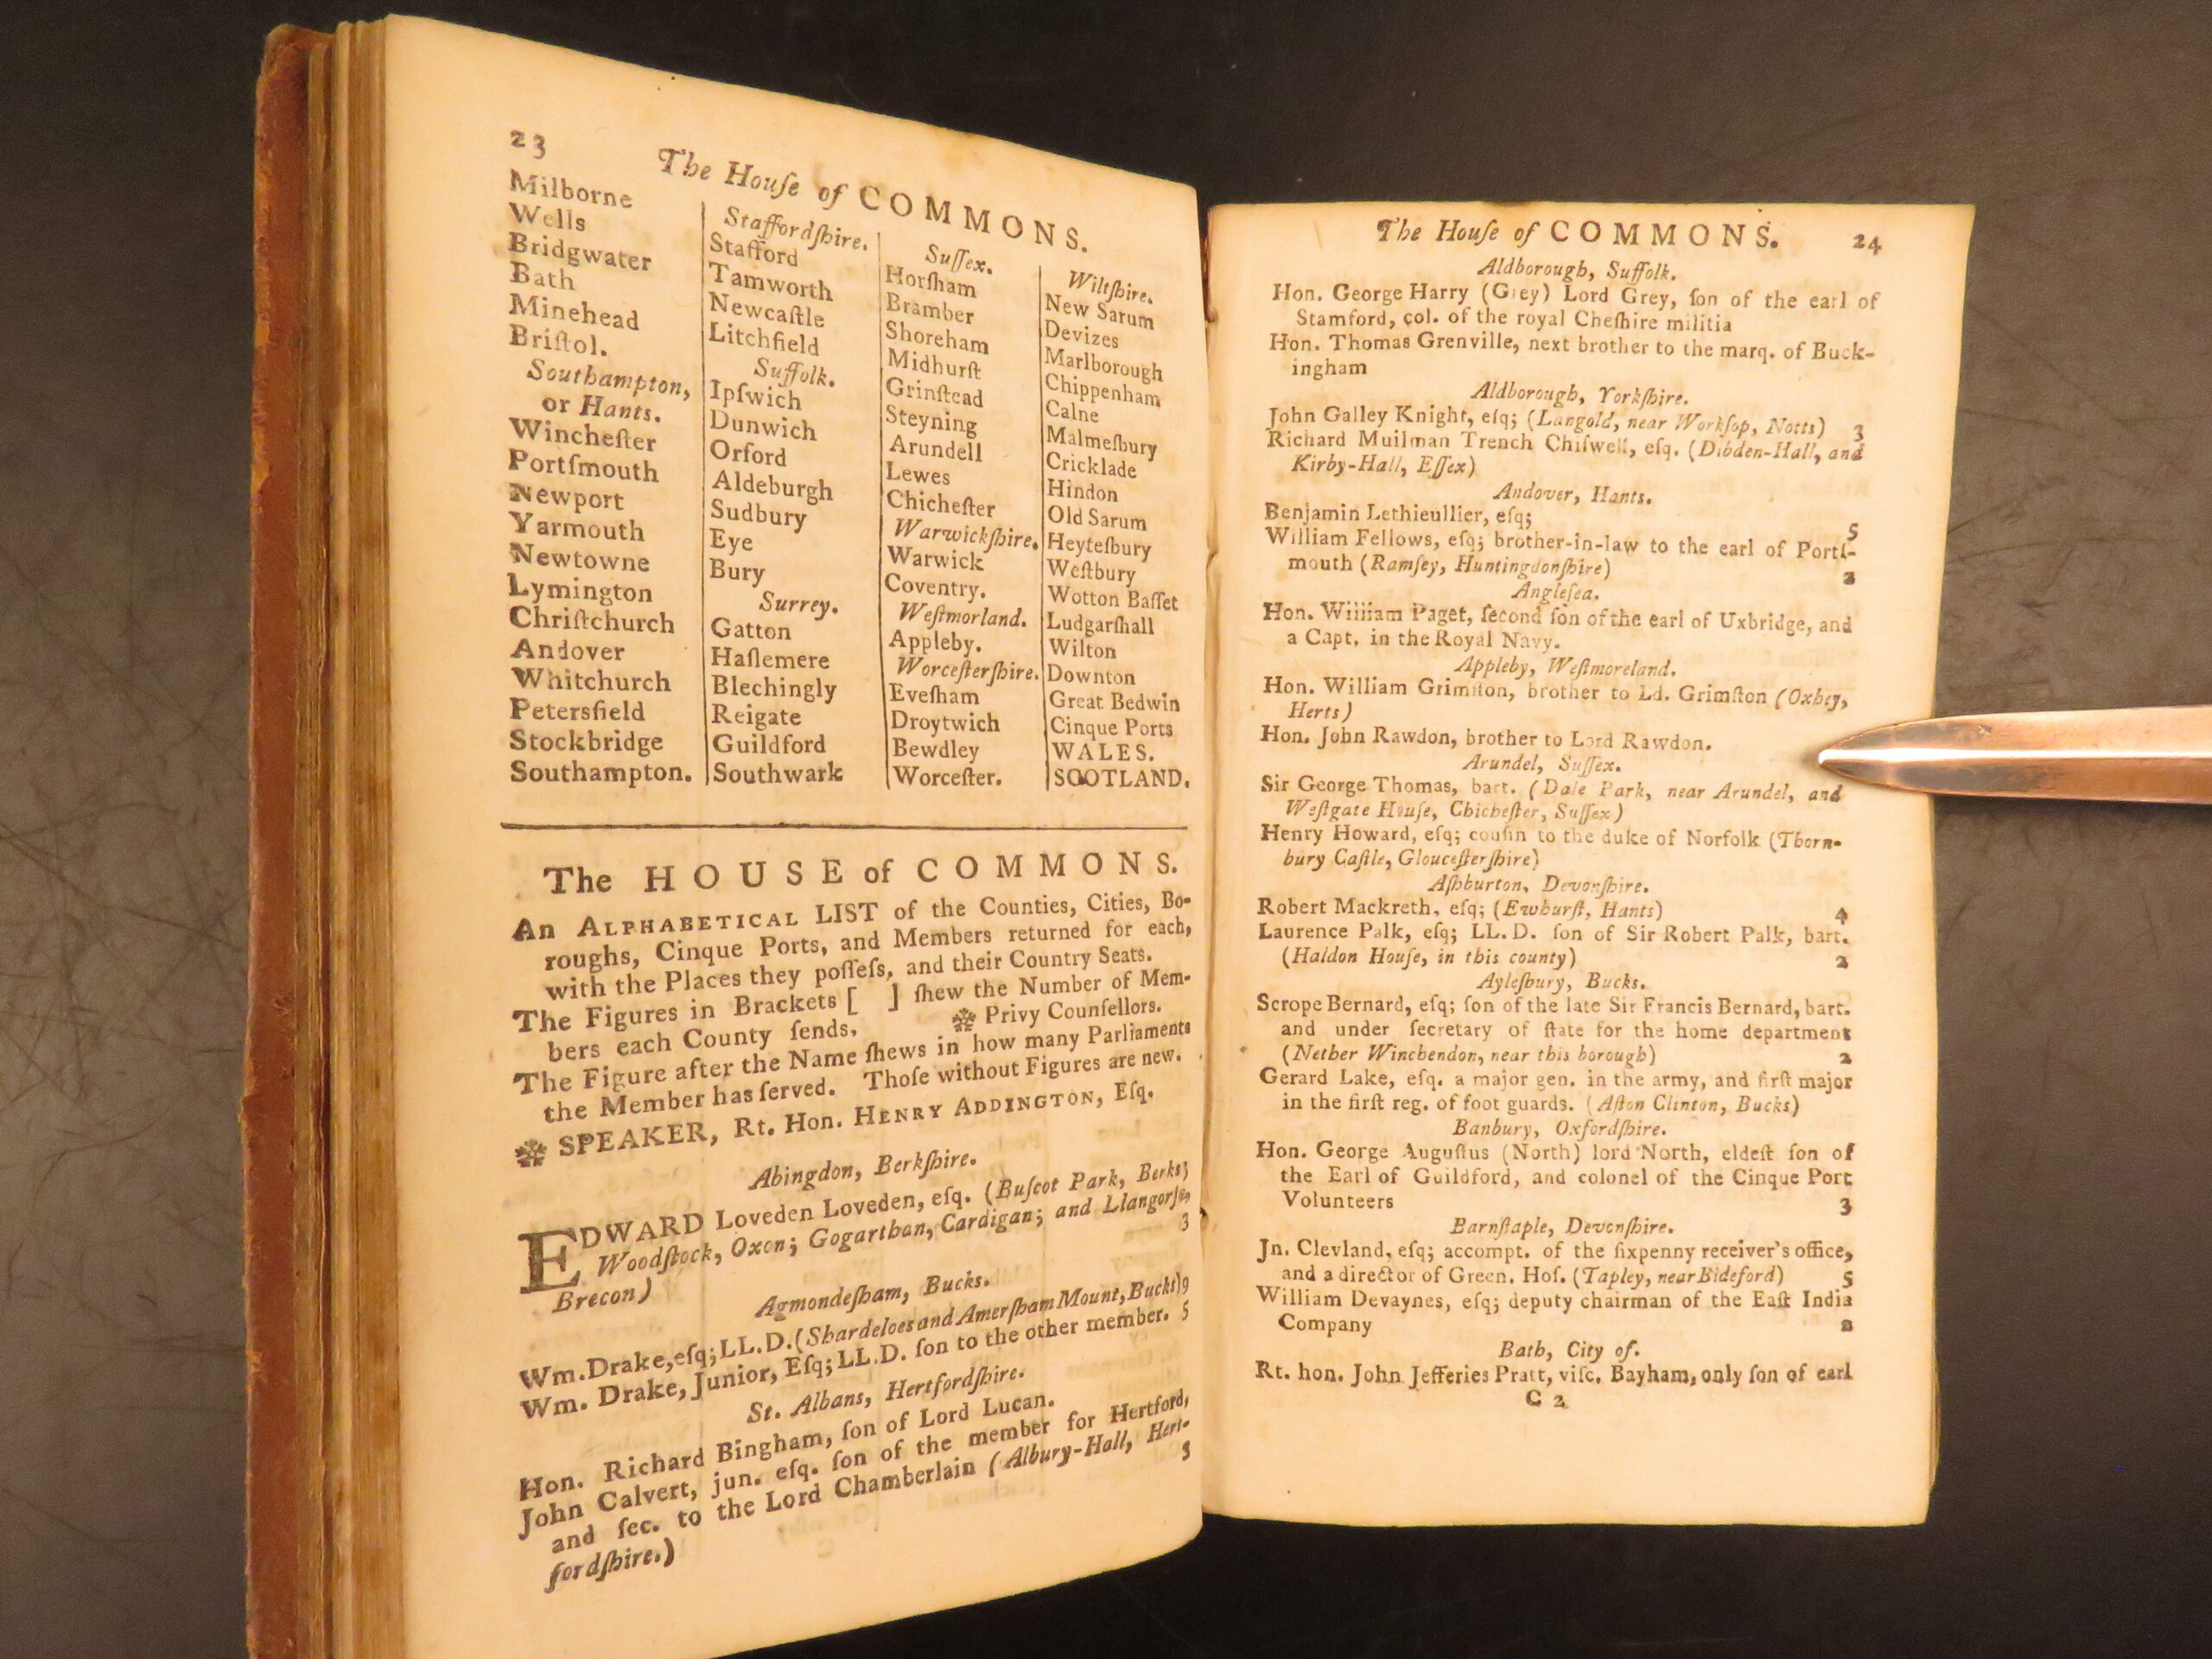 23
The Houſe of COMMONS.
Milborne
Wells
Bridgwater
Bath
Minehead
Briſtol.
Southampton,
or Hants.
Wincheſter
Portſmouth
Newport
Yarmouth
Newtowne
Lymington
Chriſtchurch
Andover
Whitchurch
Petersfield
Stockbridge
Southampton.
Staffordſhire.
Stafford
Tamworth
Newcaſtle
Litchfield
Suffolk.
Ipſwich
Dunwich
Orford
Aldeburgh
Sudbury
Eye
Bury
Surrey.
Gatton
Haſlemere
Blechingly
Reigate
Guildford
Southwark
Suſſex.
Horſham
Bramber
Shoreham
Midhurſt
Grinſtead
Steyning
Arundell
Lewes
Chicheſter
Warwickſhire.
Warwick
Coventry.
Weſtmorland.
Appleby.
Worceſterſhire.
Eveſham
Droytwich
Bewdley
Worceſter.
Wiltſhire.
New Sarum
Devizes
Marlborough
Chippenham
Calne
Malmeſbury
Cricklade
Hindon
Old Sarum
Heyteſbury
Weſtbury
Wotton Baſſet
Ludgarſhall
Wilton
Downton
Great Bedwin
Cinque Ports
WALES.
SCOTLAND.
The HOUSE of COMMONS.
An ALPHABETICAL LIST of the Counties, Cities, Bo-
roughs, Cinque Ports, and Members returned for each,
with the Places they poſſeſs, and their Country Seats.
The Figures in Brackets [ ] ſhew the Number of Mem-
bers each County ſends. ❉ Privy Counſellors.
The Figure after the Name ſhews in how many Parliaments
the Member has ſerved. Thoſe without Figures are new.
❉ SPEAKER, Rt. Hon. HENRY ADDINGTON, Eſq.
Abingdon, Berkſhire.
EDWARD Loveden Loveden, eſq. (Buſcot Park, Berks;
Woodſtock, Oxon; Gogarthan, Cardigan; and Llangorſe,
Brecon) 3
Agmondeſham, Bucks.
Wm. Drake, eſq; LL.D. (Shardeloes and Amerſham Mount, Bucks) 9
Wm. Drake, Junior, Eſq; LL.D. ſon to the other member. 5
St. Albans, Hertfordſhire.
Hon. Richard Bingham, ſon of Lord Lucan.
John Calvert, jun. eſq. ſon of the member for Hertford,
and ſec. to the Lord Chamberlain (Albury-Hall, Hert-
fordſhire.) 3
The Houſe of COMMONS. 24
Aldborough, Suffolk.
Hon. George Harry (Grey) Lord Grey, ſon of the earl of
Stamford, col. of the royal Cheſhire militia
Hon. Thomas Grenville, next brother to the marq. of Buck-
ingham
Aldborough, Yorkſhire.
John Galley Knight, eſq; (Langold, near Workſop, Notts) 3
Richard Muilman Trench Chiſwell, eſq. (Dibden-Hall, and
Kirby-Hall, Eſſex)
Andover, Hants.
Benjamin Lethieullier, eſq; 5
William Fellows, eſq; brother-in-law to the earl of Portſ-
mouth (Ramſey, Huntingdonſhire) 2
Angleſea.
Hon. William Paget, ſecond ſon of the earl of Uxbridge, and
a Capt. in the Royal Navy.
Appleby, Weſtmoreland.
Hon. William Grimſton, brother to Ld. Grimſton (Oxhey,
Herts)
Hon. John Rawdon, brother to Lord Rawdon.
Arundel, Suſſex.
Sir George Thomas, bart. (Dale Park, near Arundel, and
Weſtgate Houſe, Chicheſter, Suſſex)
Henry Howard, eſq; couſin to the duke of Norfolk (Thorn-
bury Caſtle, Glouceſterſhire)
Aſhburton, Devonſhire.
Robert Mackreth, eſq; (Ewhurſt, Hants) 4
Laurence Palk, eſq; LL.D. ſon of Sir Robert Palk, bart.
(Haldon Houſe, in this county) 2
Ayleſbury, Bucks.
Scrope Bernard, eſq; ſon of the late Sir Francis Bernard, bart.
and under ſecretary of ſtate for the home department
(Nether Winchendon, near this borough) 2
Gerard Lake, eſq. a major gen. in the army, and firſt major
in the firſt reg. of foot guards. (Aſton Clinton, Bucks)
Banbury, Oxfordſhire.
Hon. George Auguſtus (North) lord North, eldeſt ſon of
the Earl of Guildford, and colonel of the Cinque Port
Volunteers 3
Barnſtaple, Devonſhire.
Jn. Clevland, eſq; accompt. of the ſixpenny receiver's office,
and a director of Green. Hoſ. (Tapley, near Bideford) 5
William Devaynes, eſq; deputy chairman of the Eaſt India
Company 2
Bath, City of.
Rt. hon. John Jefferies Pratt, viſc. Bayham, only ſon of earl
C 2